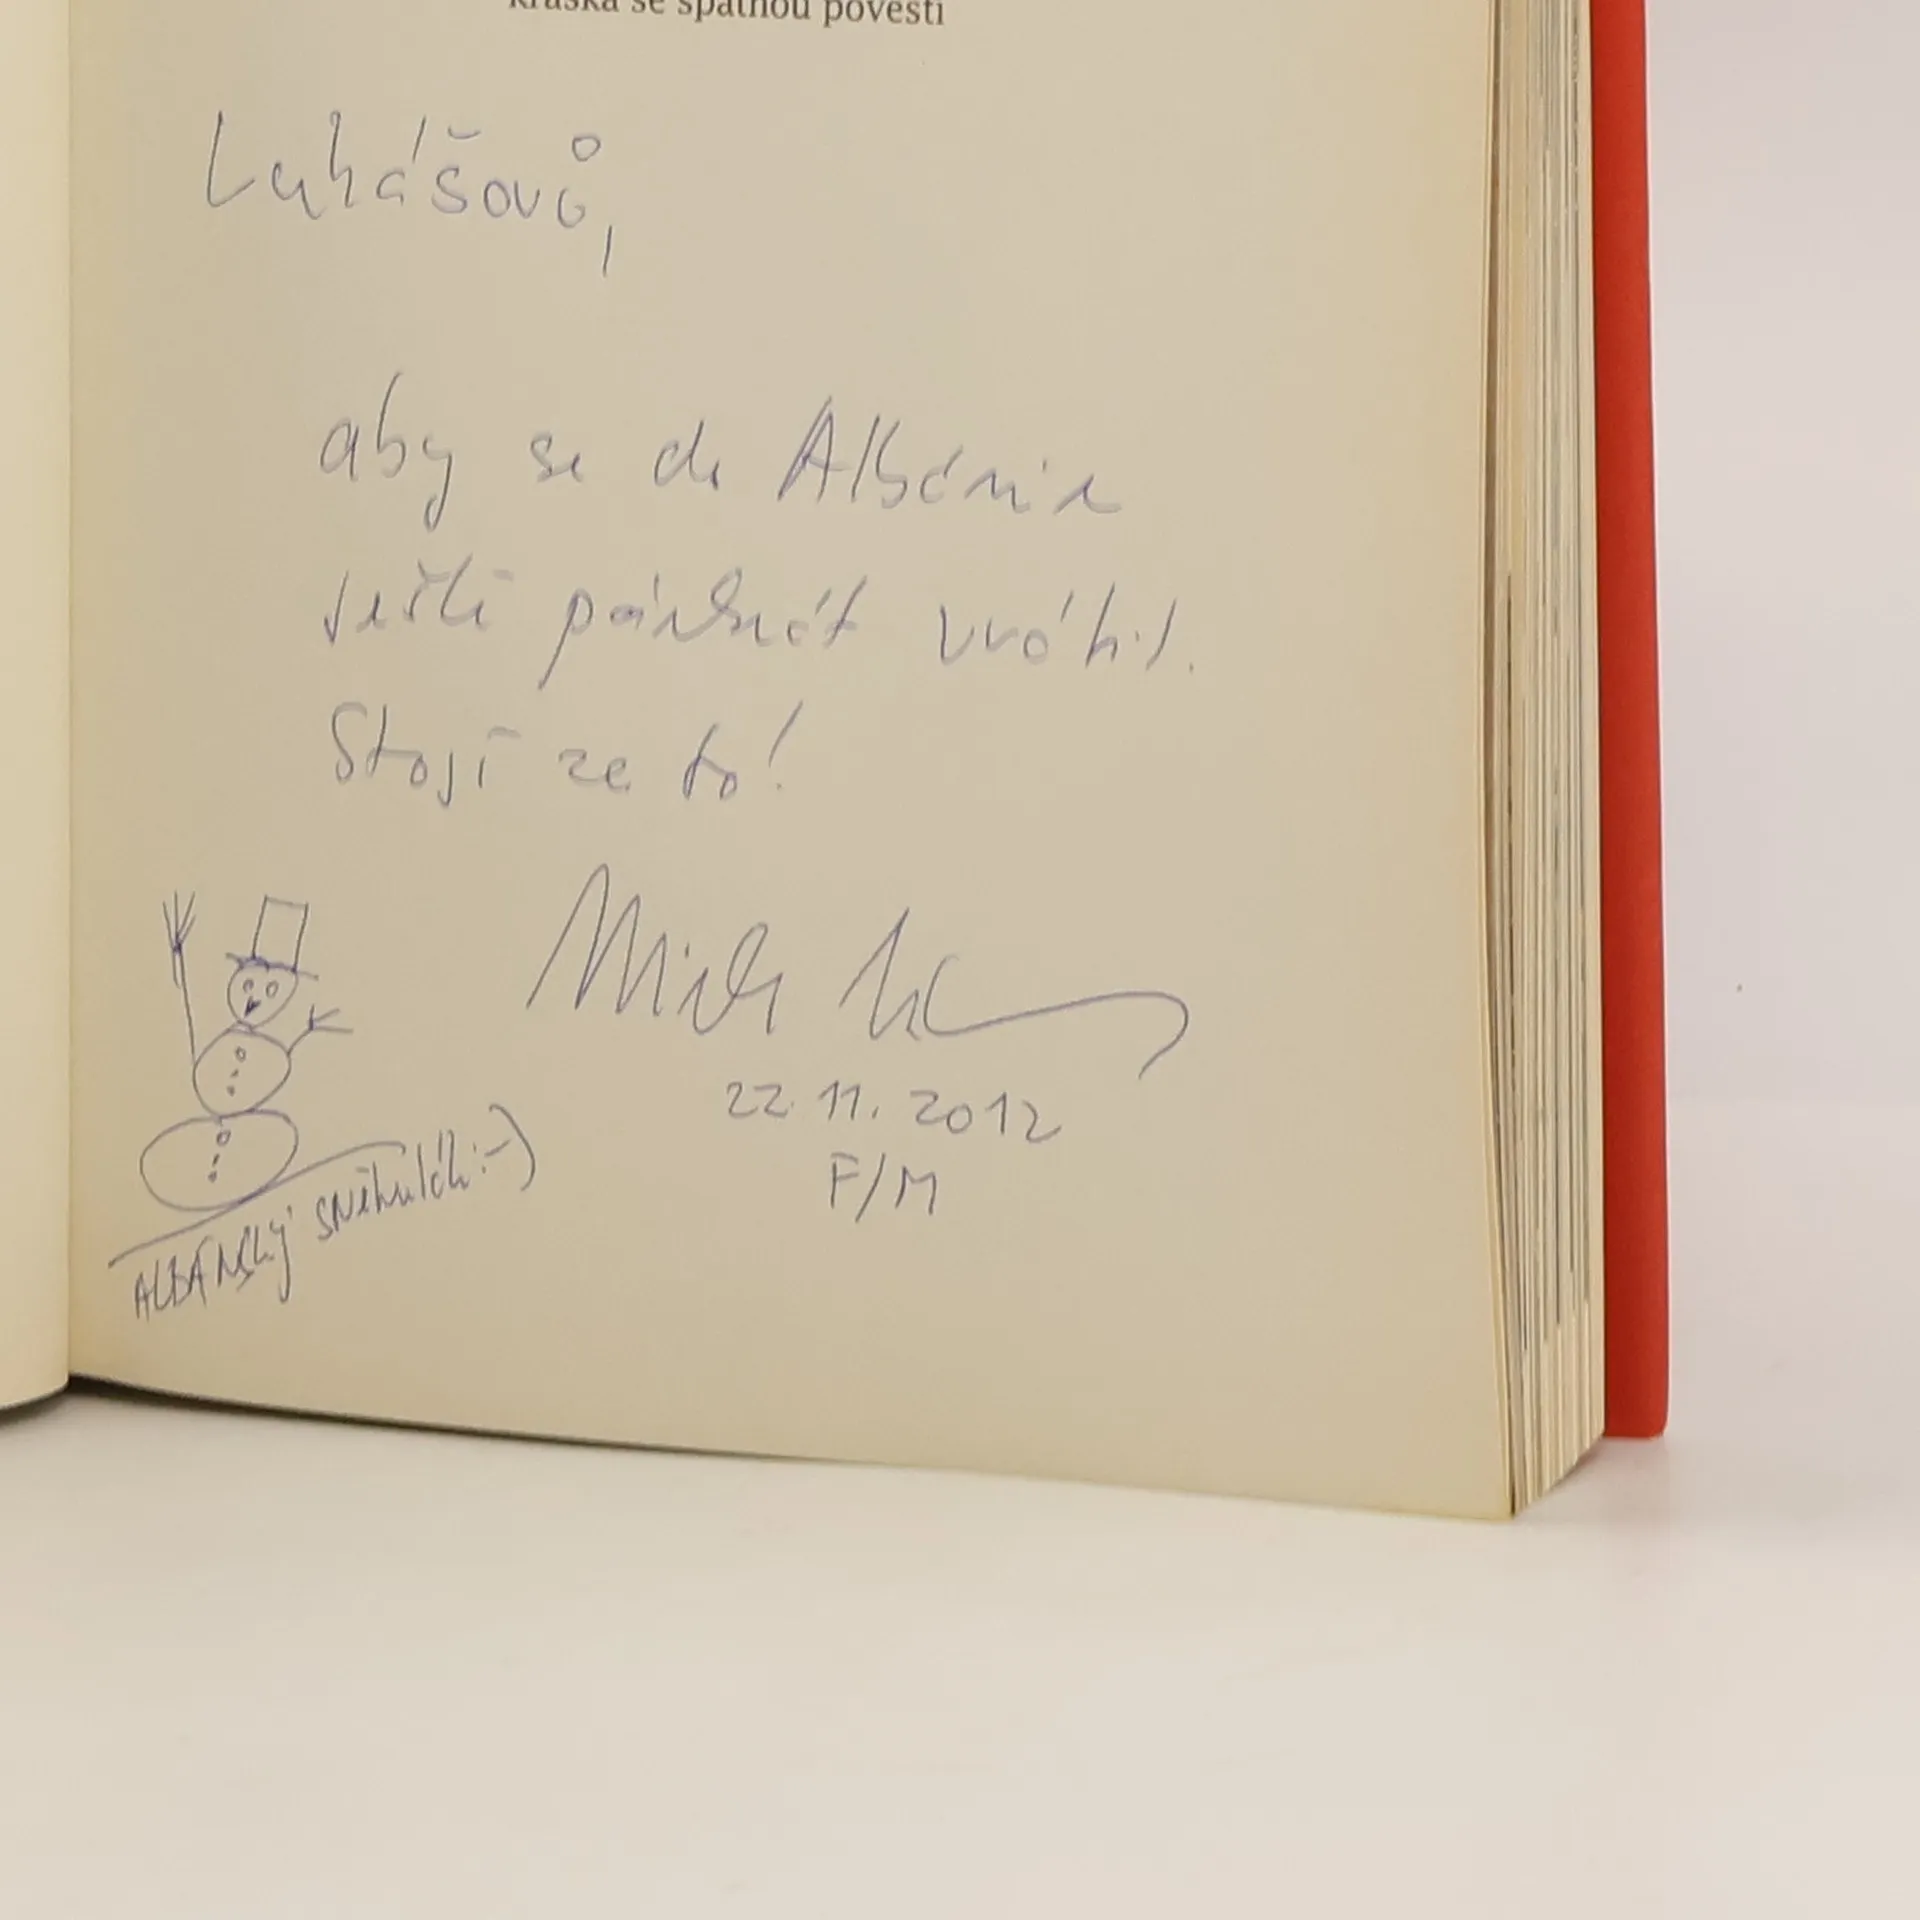 kráska se špatnou pověstí
Lukášovů,
aby se do Albánie
ještě párkrát vrátil.
Stojí za to!
22. 11. 2012
F/M
ALBÁNSKÝ SNěhulák :-)